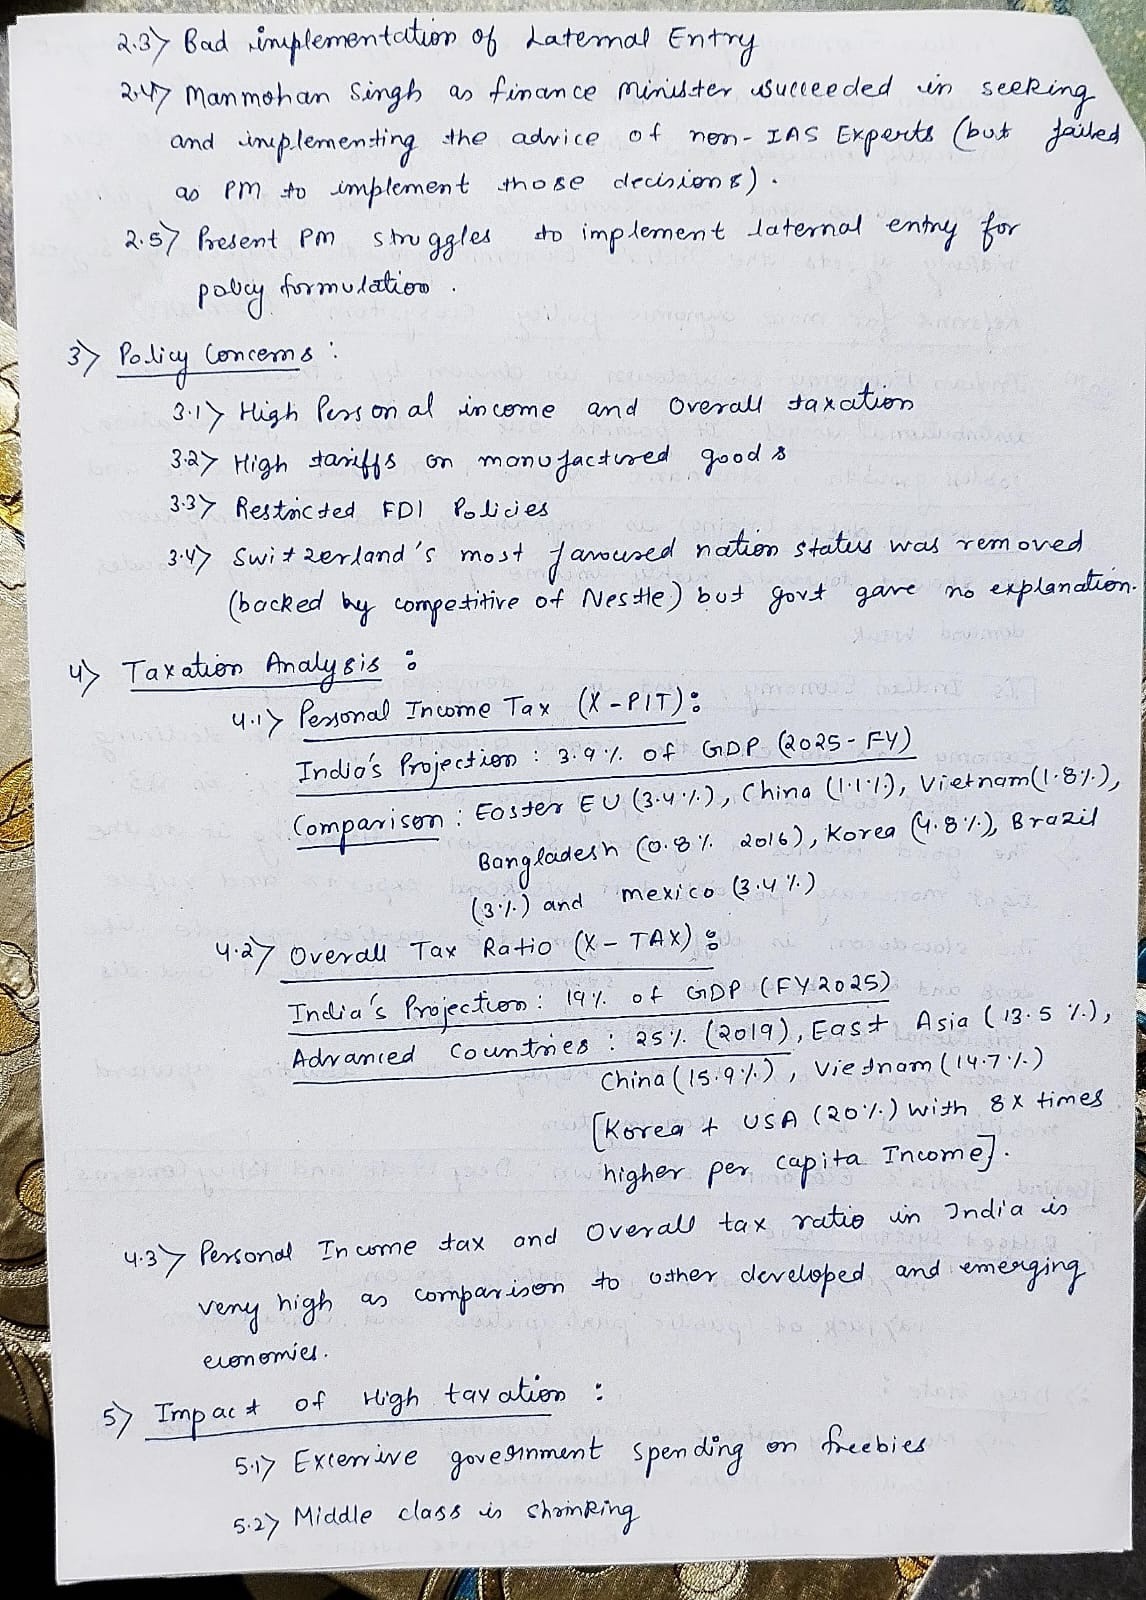 2.3> Bad implementation of Laternal Entry
2.4> Manmohan Singh as finance minister succeeded in seeking
and implementing the advice of non-IAS Experts (but failed
as PM to implement those decisions).
2.5> Present PM struggles to implement laternal entry for
policy formulation.
3> Policy Concerns :
3.1> High Personal income and Overall taxation
3.2> High tariffs on manufactured goods
3.3> Restricted FDI Policies
3.4> Switzerland's most favoured nation status was removed
(backed by competitive of Nestle) but govt gave no explanation.
4> Taxation Analysis :
4.1> Personal Income Tax (X-PIT):
India's Projection : 3.9% of GDP (2025-FY)
Comparison : Easter EU (3.4%), China (1.1%), Vietnam (1.8%),
Bangladesh (0.8% 2016), Korea (4.8%), Brazil
(3%) and mexico (3.4%)
4.2> Overall Tax Ratio (X-TAX) :
India's Projection : 19% of GDP (FY2025)
Advanced Countries : 25% (2019), East Asia (13.5%),
China (15.9%), Vietnam (14.7%)
[Korea + USA (20%) with 8x times
higher per capita Income].
4.3> Personal Income tax and Overall tax ratio in India is
very high as comparison to other developed and emerging
economies.
5> Impact of High taxation :
5.1> Excessive government spending on freebies
5.2> Middle class is shrinking